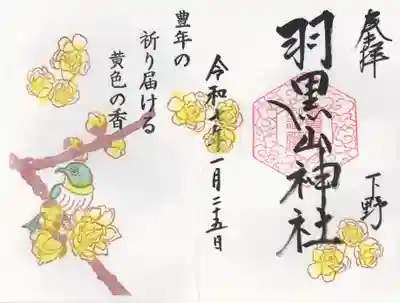 奉拝
下野
羽黒山神社
令和七年一月二十五日
豊年の
祈り届ける
黄色の香